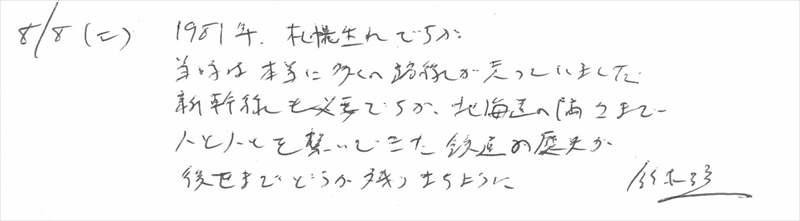 8/8(二) 1981年、札幌生れですが
当時は本当に多くの路線が走っていました
新幹線も必要ですが、北海道の隅々まで
人と人とを繋いできた鉄道の歴史が
後世までどうか残りますように
鈴木